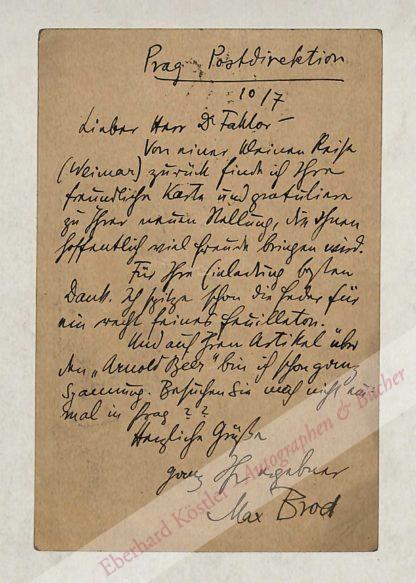 Prag Postdirektion
10/7
Lieber Herr Dr Faktor –
Von einer kleinen Reise
(Weimar) zurück finde ich Ihre
freundliche Karte und gratuliere
zu Ihrer neuen Stellung, die Ihnen
hoffentlich viel Freude bringen wird.
Für Ihre Einladung besten
Dank. Ich spitze schon die Feder für
ein recht feines Feuilleton.
Und auf Ihren Artikel über
den „Arnold Beer" bin ich schon ganz
Spannung. Besuchen Sie mich nicht ein-
mal in Prag??
Herzliche Grüße
ganz Ihr ergebener
Max Brod
Eberhard Köstler - Autographen & Bücher